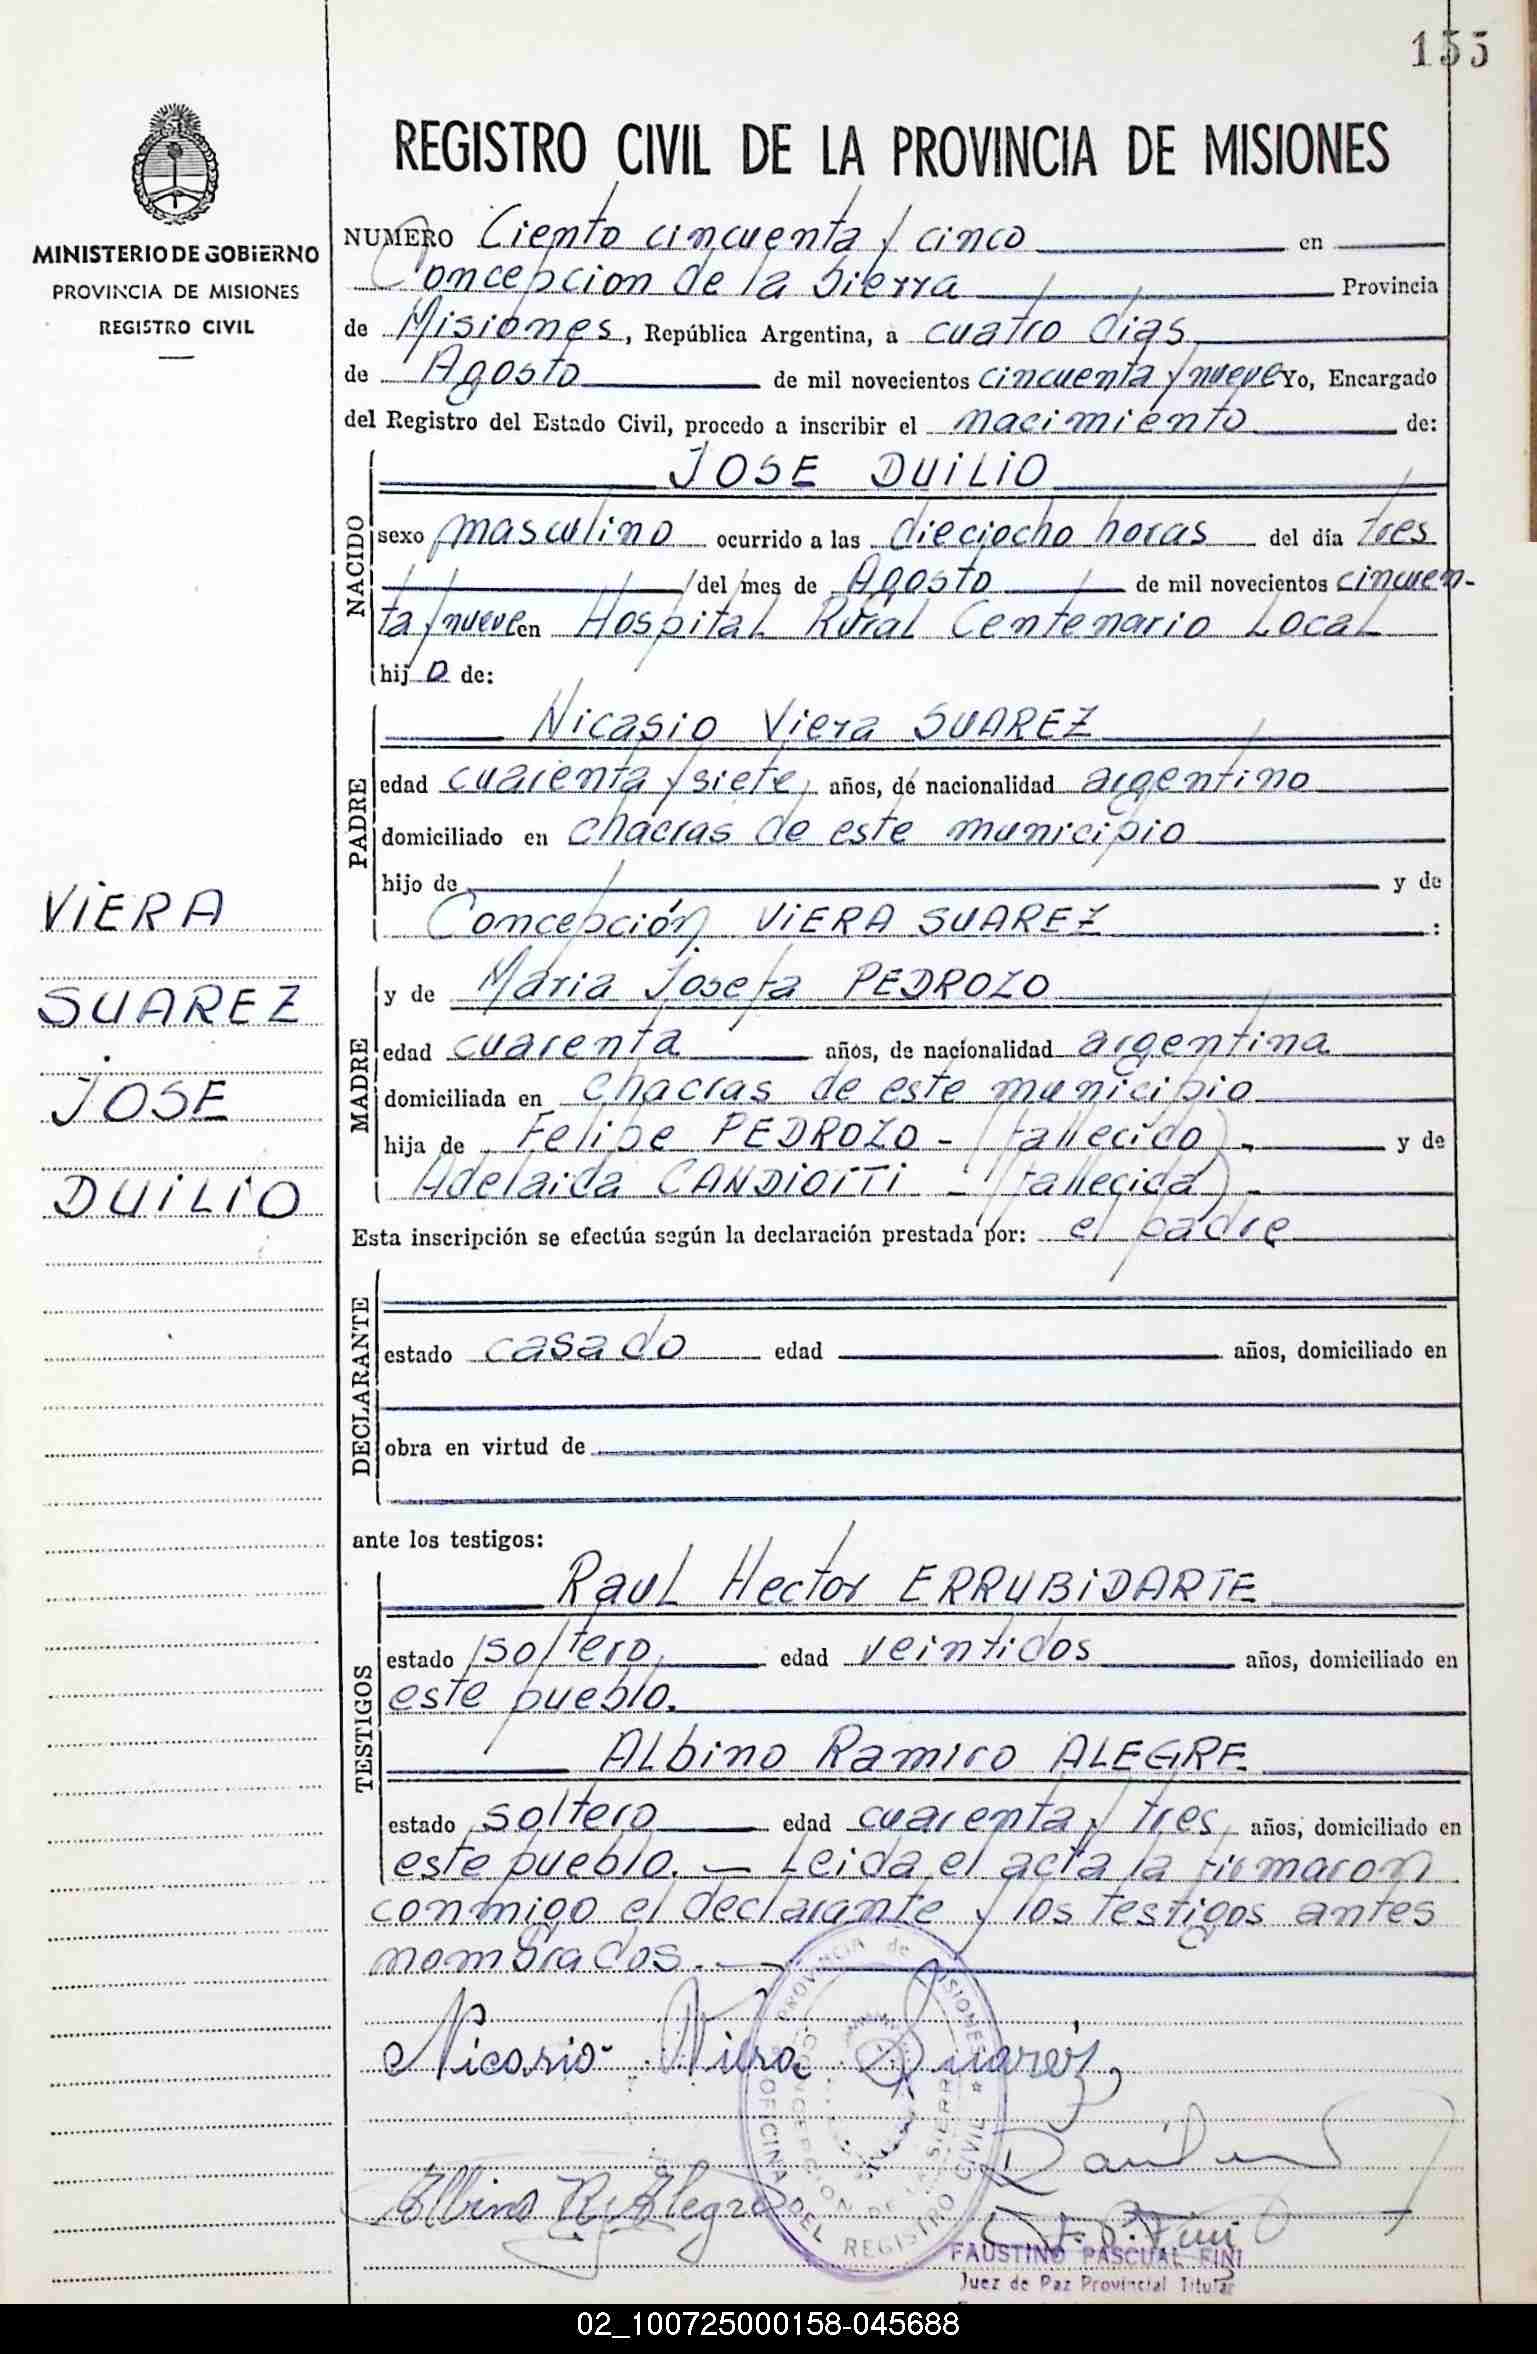 155
REGISTRO CIVIL DE LA PROVINCIA DE MISIONES
MINISTERIO DE GOBIERNO
PROVINCIA DE MISIONES
REGISTRO CIVIL
NUMERO Ciento cincuenta y cinco en
Concepcion de la Sierra Provincia
de Misiones, República Argentina, a cuatro dias
de Agosto de mil novecientos cincuenta y nueve Yo, Encargado
del Registro del Estado Civil, procedo a inscribir el nacimiento de:
NACIDO
JOSE DUILIO
sexo masculino ocurrido a las dieciocho horas del día tres
del mes de Agosto de mil novecientos cincuen-
ta y nueve en Hospital Rural Centenario Local
hijo de:
PADRE
Nicasio Viera SUAREZ
edad cuarenta y siete años, de nacionalidad argentino
domiciliado en chacras de este municipio
hijo de y de
Concepción VIERA SUAREZ :
MADRE
y de Maria Josefa PEDROZO
edad cuarenta años, de nacionalidad argentina
domiciliada en chacras de este municipio
hija de Felipe PEDROZO - (fallecido) - y de
Adelaida CANDIOTTI - (fallecida) -
Esta inscripción se efectúa según la declaración prestada por: el padre
VIERA
SUAREZ
JOSE
DUILIO
DECLARANTE
estado casado edad años, domiciliado en
obra en virtud de
ante los testigos:
TESTIGOS
Raul Hector ERRUBIDARTE
estado soltero edad veintidos años, domiciliado en
este pueblo.
Albino Ramiro ALEGRE
estado soltero edad cuarenta y tres años, domiciliado en
este pueblo. — Leida el acta la firmaron
conmigo el declarante y los testigos antes
nombrados. —
PROVINCIA de MISIONES
OFICINA DEL REGISTRO CIVIL
CONCEPCION DE LA SIERRA
Nicasio Viera Suárez
Albino R. Alegre
F. P. Fini
FAUSTINO PASCUAL FINI
Juez de Paz Provincial Titular
02_100725000158-045688